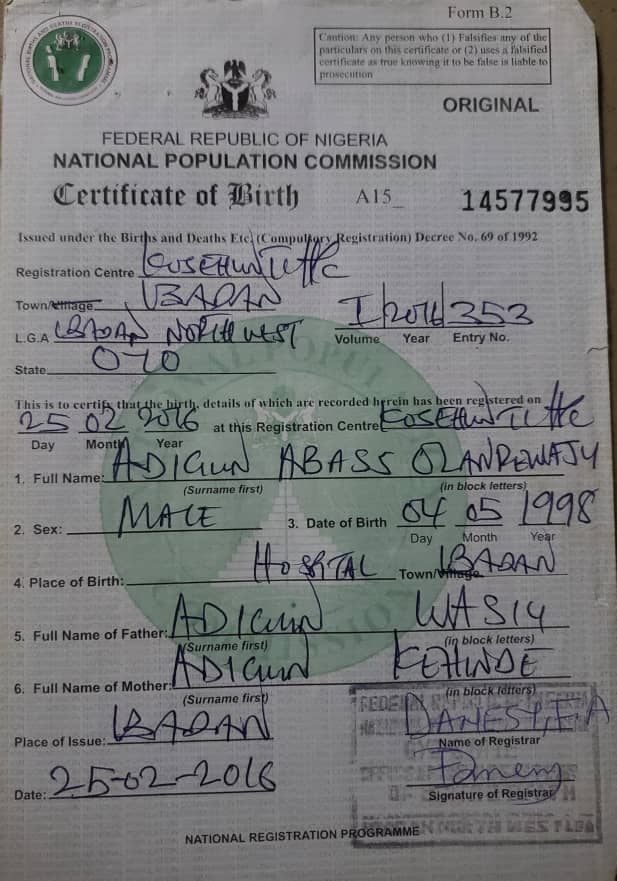 Form B.2
Caution: Any person who (1) Falsifies any of the
particulars on this certificate or (2) uses a falsified
certificate as true knowing it to be false is liable to
prosecution
ORIGINAL
FEDERAL REPUBLIC OF NIGERIA
NATIONAL POPULATION COMMISSION
Certificate of Birth A15_ 14577995
Issued under the Births and Deaths Etc. (Compulsory Registration) Decree No. 69 of 1992
Registration Centre
Town/Village IBADAN
L.G.A IBADAN NORTH WEST I 2016 353
Volume Year Entry No.
State OYO
This is to certify that the birth, details of which are recorded herein has been registered on
25 02 2016 at this Registration Centre
Day Month Year
1. Full Name: ADIGUN ABASS OLANREWAJU
(Surname first) (in block letters)
2. Sex: MALE 3. Date of Birth 04 05 1998
Day Month Year
4. Place of Birth: HOSPITAL Town/Village IBADAN
5. Full Name of Father: ADIGUN WASIU
(Surname first) (in block letters)
6. Full Name of Mother: ADIGUN KEHINDE
(Surname first) (in block letters)
Place of Issue: IBADAN
Name of Registrar
Date: 25-02-2016
Signature of Registrar
NATIONAL REGISTRATION PROGRAMME